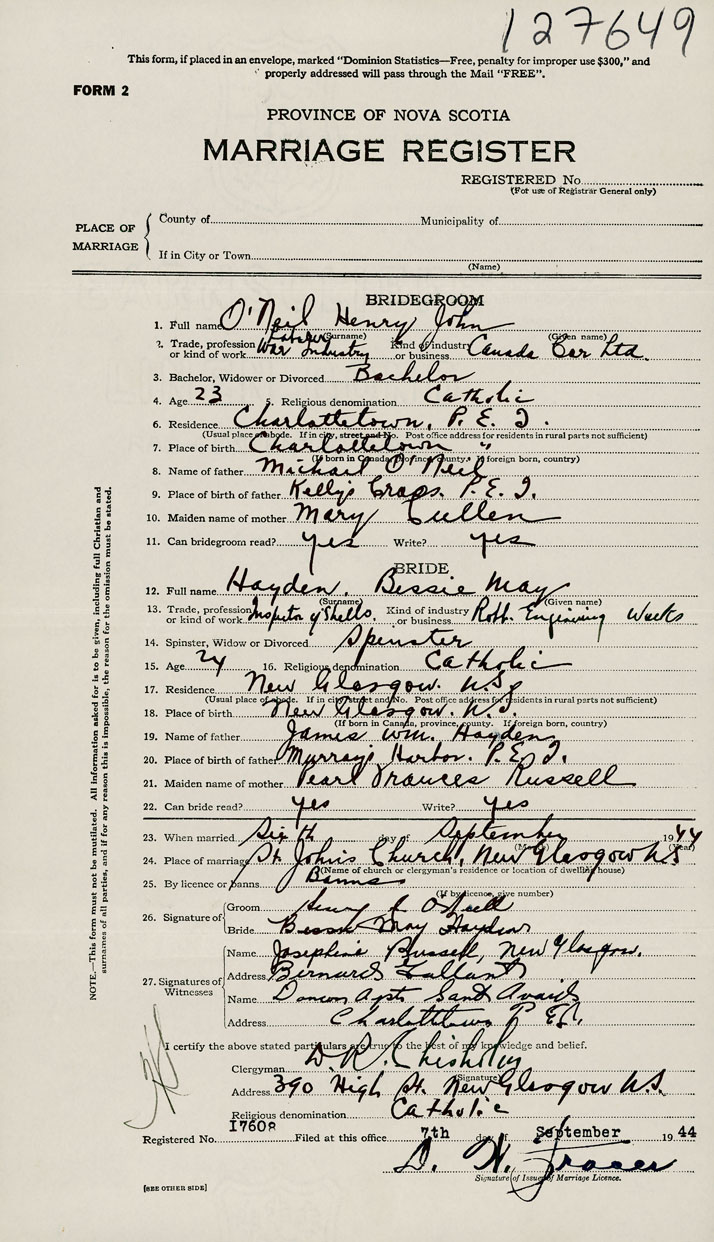 127649
This form, if placed in an envelope, marked "Dominion Statistics—Free, penalty for improper use $300," and
properly addressed will pass through the Mail "FREE".
FORM 2
PROVINCE OF NOVA SCOTIA
MARRIAGE REGISTER
REGISTERED No.
(For use of Registrar General only)
PLACE OF MARRIAGE
County of Municipality of
If in City or Town
(Name)
BRIDEGROOM
1. Full name O'Neil Henry John
(Surname) (Given name)
2. Trade, profession or kind of work War Industry Kind of industry or business Canada Car Ltd.
3. Bachelor, Widower or Divorced Bachelor
4. Age 23 5. Religious denomination Catholic
6. Residence Charlottetown, P.E.I.
(Usual place of abode. If in city, street and No. Post office address for residents in rural parts not sufficient)
7. Place of birth Charlottetown "
(If born in Canada, province, county. If foreign born, country)
8. Name of father Michael O'Neil
9. Place of birth of father Kellys Cross. P.E.I.
10. Maiden name of mother Mary Cullen
11. Can bridegroom read? yes Write? yes
BRIDE
12. Full name Hayden, Bessie May
(Surname) (Given name)
13. Trade, profession or kind of work Inspector of Shells. Kind of industry or business Works
14. Spinster, Widow or Divorced Spinster
15. Age 24 16. Religious denomination Catholic
17. Residence New Glasgow. N.S.
(Usual place of abode. If in city, street and No. Post office address for residents in rural parts not sufficient)
18. Place of birth New Glasgow. N.S.
(If born in Canada, province, county. If foreign born, country)
19. Name of father James Wm. Hayden
20. Place of birth of father Murray Harbor. P.E.I.
21. Maiden name of mother Pearl Frances Russell
22. Can bride read? yes Write? yes
23. When married Sixth day of September 1944
(Year)
24. Place of marriage St. John's Church, New Glasgow N.S.
(Name of church or clergyman's residence or location of dwelling house)
25. By licence or banns Banns
(If by licence, give number)
26. Signature of
Groom Henry J O'Neill
Bride Bessie May Hayden
27. Signatures of Witnesses
Name Josephine Russell, New Glasgow.
Address Bernard Gallant
Name Apts
Address Charlottetown P.E.I.
I certify the above stated particulars are true to the best of my knowledge and belief.
Clergyman D. R. Chisholm
(Signature)
Address 390 High St. New Glasgow N.S.
Religious denomination Catholic
Registered No. 17608 Filed at this office 7th day of September 1944
D. H. Fraser
Signature of Issuer of Marriage Licence.
[SEE OTHER SIDE]
NOTE.—This form must not be mutilated. All information asked for is to be given, including full Christian and
surnames of all parties, and if for any reason this is impossible, the reason for the omission must be stated.